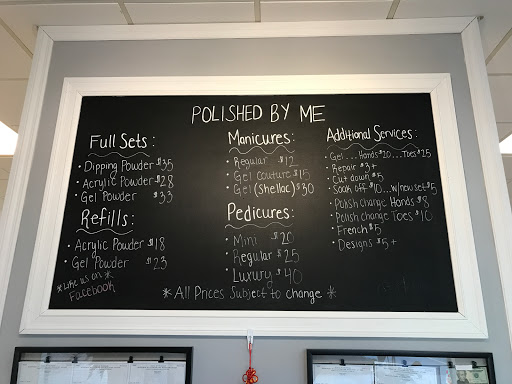 POLISHED BY ME
Full Sets:
• Dipping Powder $35
• Acrylic Powder $28
• Gel Powder $33
Refills:
• Acrylic Powder $18
• Gel Powder $23
*Like us on*
Facebook
Manicures:
• Regular $12
• Gel Couture $15
• Gel (Shellac) $30
Pedicures:
• Mini $20
• Regular $25
• Luxury $40
Additional Services:
• Gel...Hands $20...Toes $25
• Repair $3+
• Cut down $5
• Soak off $10...w/new set $5
• Polish change Hands $8
• Polish change Toes $10
• French $5
• Designs $5+
* All Prices Subject to change *